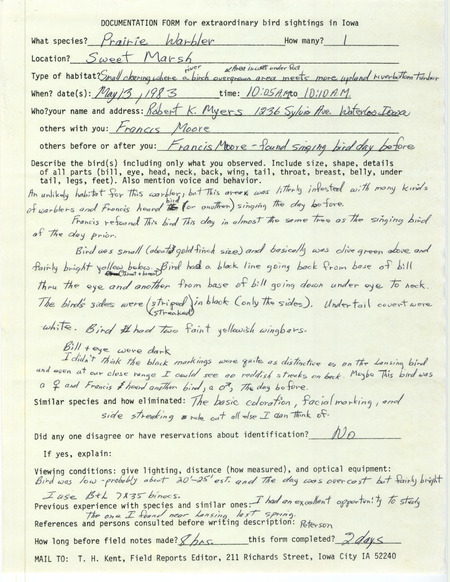 DOCUMENTATION FORM for extraordinary bird sightings in Iowa
What species? Prairie Warbler How many? 1
Location? Sweet Marsh
river
Type of habitat? Small clearing where a birch overgrown area meets more upland riverbottom timber
When? date(s): May 13, 1983 time: 10:05 AM to 10:10 A.M.
Who? your name and address: Robert K. Myers 1836 Sylvia Ave. Waterloo, Iowa
others with you: Francis Moore
others before or after you: Francis Moore - found singing bird day before
Describe the bird(s) including only what you observed. Include size, shape, details
of all parts (bill, eye, head, neck, back, wing, tail, throat, breast, belly, under
tail, legs, feet). Also mention voice and behavior.
An unlikely habitat for this warbler, but this area was litterly infested with many kinds
of warblers and Francis heard bird (or another) singing the day before.
Francis refound this bird this day in almost the same tree as the singing bird
of the day prior.
Bird was small (about goldfinch size) and basically was olive green above, and
fairly bright yellow below. Bird had a black line going back from base of bill
thru the eye and another from base of bill going down under eye to neck.
The bird's sides were (striped) in black (only the sides). Undertail covert were
(streaked)
white. Bird had two faint yellowish wingbars.
Bill + eye were dark
I didn't think the black markings were quite as distinctive as on the Lansing bird
and even at our close range I could see no reddish streaks on back. Maybe this bird was
a ♀ and Francis heard another bird, a ♂, the day before.
Similar species and how eliminated: The basic coloration, facial marking, and
side streaking rule out all else I can think of.
Did any one disagree or have reservations about identification? No
If yes, explain:
Viewing conditions: give lighting, distance (how measured), and optical equipment:
Bird was low - probably about 20'-25' est. and the day was overcast but fairly bright
I use B+L 7X35 binocs.
Previous experience with species and similar ones: I had an excellent opportunity to study
the one I found near Lansing last spring.
References and persons consulted before writing description: Peterson
How long before field notes made? 8 hrs. this form completed? 2 days
MAIL TO: T. H. Kent, Field Reports Editor, 211 Richards Street, Iowa City IA 52240